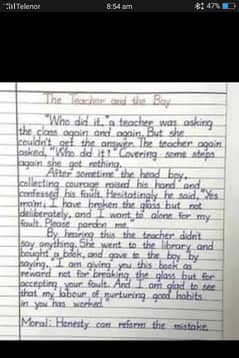 Telenor
8:54 am
47%
The Teacher and the Boy
"Who did it," a teacher was asking
the class again and again. But she
couldn't get the answer. The teacher again
asked, "Who did it?" Covering some steps
again she got nothing.
After sometime the head boy,
collecting courage raised his hand and
confessed his fault. Hesitatingly he said, "Yes
ma'm, I have broken the glass but not
deliberately, and I want to alone for my
fault. Please pardon me."
By hearing this the teacher didn't
say anything. She went to the library and
bought a book, and gave to the boy by
saying, "I am giving you this book as
reward not for breaking the glass but for
accepting your fault. And I am glad to see
that my labour of nurturing good habits
in you has worked."
Moral: Honesty can reform the mistake.